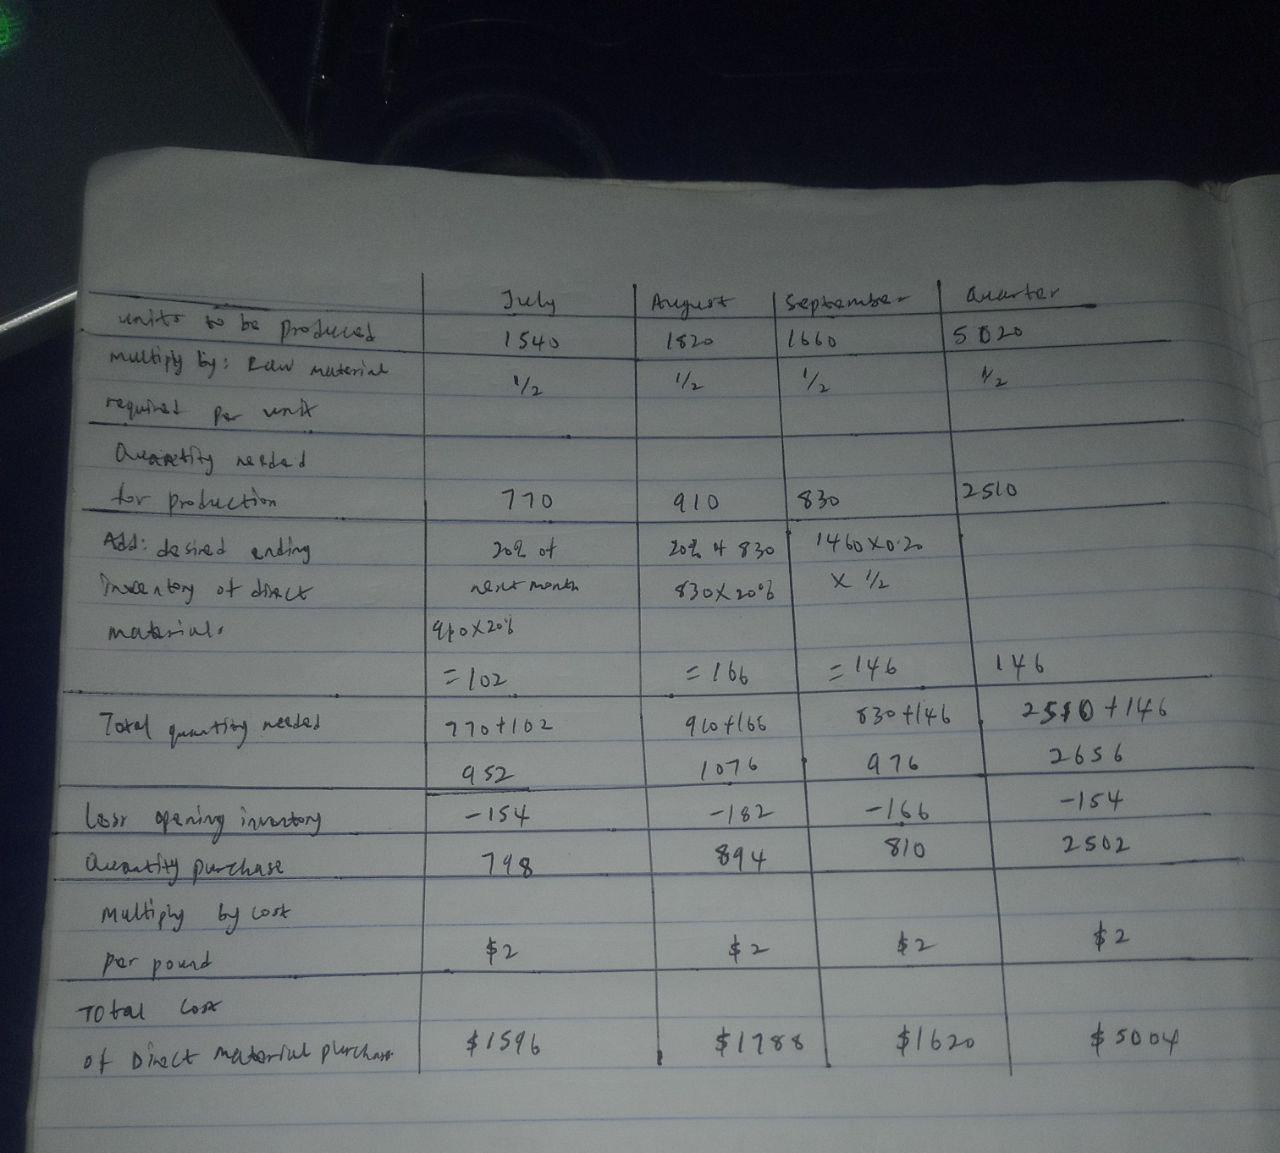 July August September Quarter
units to be produced 1540 1820 1660 5020
Multiply by: Raw material 1/2 1/2 1/2 1/2
required per unit
Quantity needed
for production 770 910 830 2510
Add: desired ending 20% of 20% of 830 1460x0.20
Inventory of direct next month 830x20% x 1/2
materials 910x20%
=102 =166 =146 146
Total quantity needed 770+102 910+166 830+146 2510+146
952 1076 976 2656
Less opening inventory -154 -182 -166 -154
Quantity purchase 798 894 810 2502
Multiply by cost
per pound $2 $2 $2 $2
Total cost
of Direct material purchase $1596 $1788 $1620 $5004